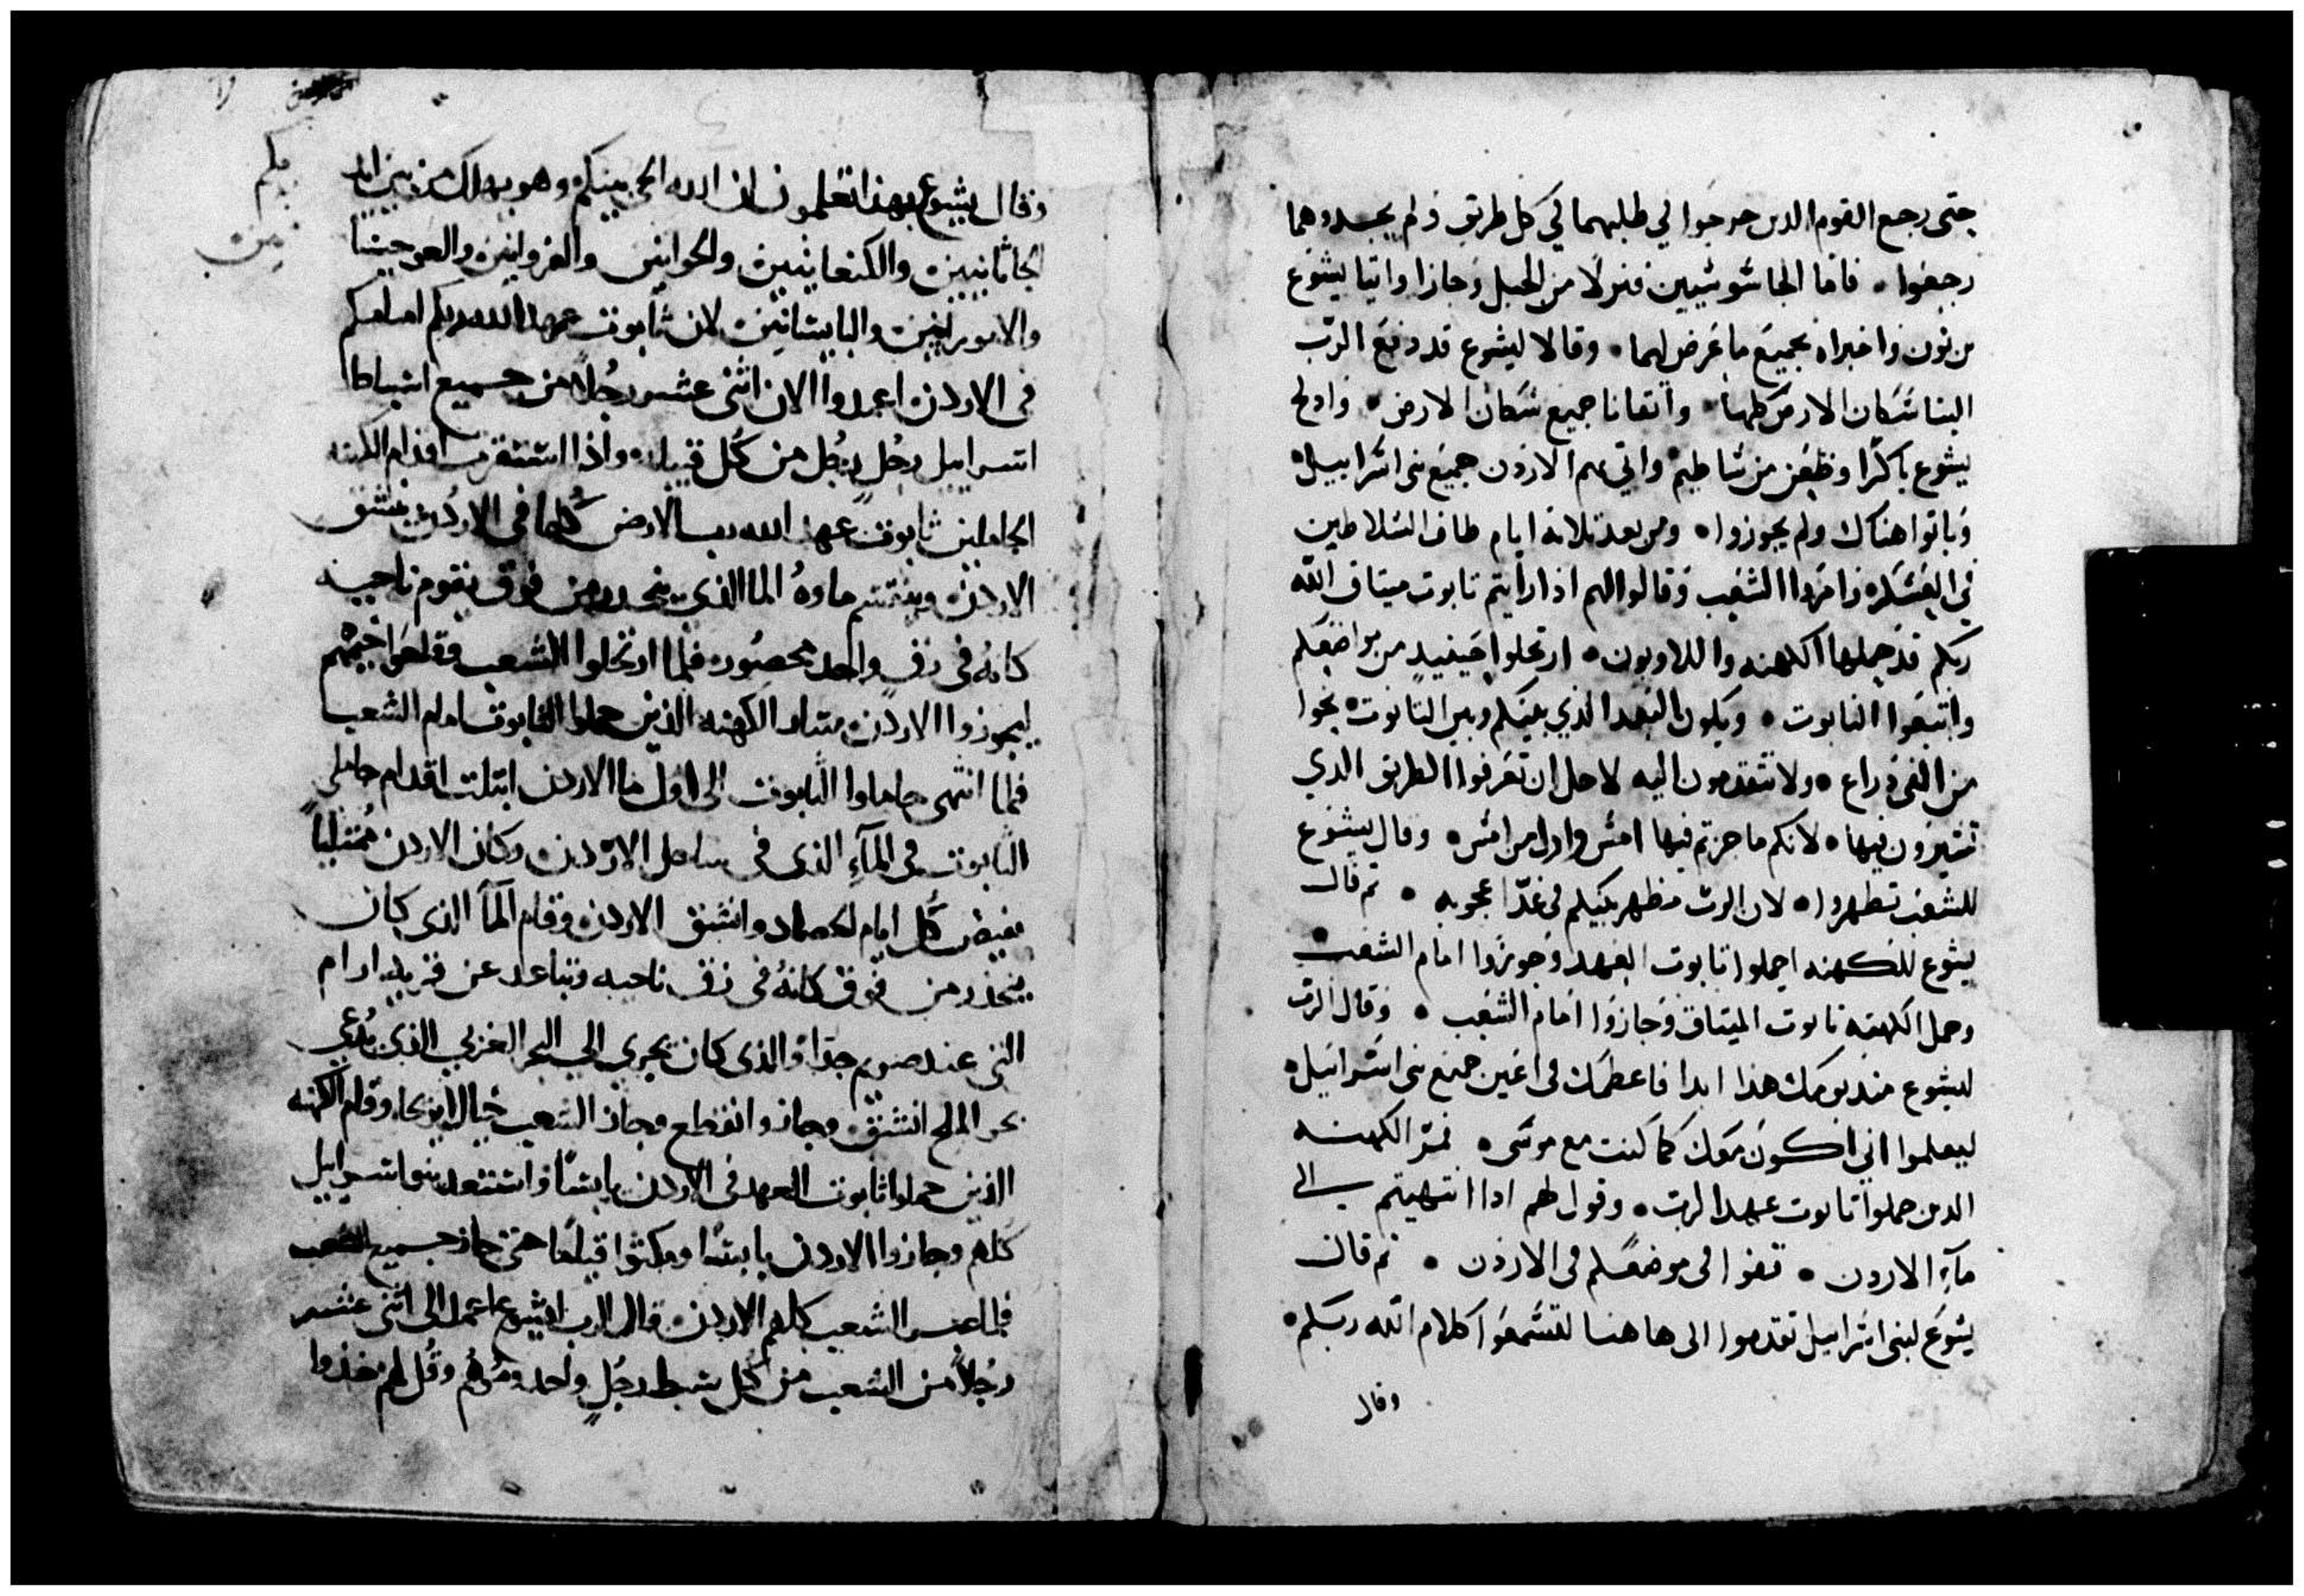 حتى رجع القوم الدين خرجوا في طلبهما في كل طريق ولم يجدوهما
رجعوا • فاما الجاسوسيين فنزلا من الجبل وجازا واتيا يشوع
بن نون واخبراه بجميع ما عرض لهما • وقالا ليشوع قد دفع الرب
الينا سكان الارض كلها • واتقانا جميع سكان الارض • وادلج
يشوع باكرا وظعن من شاطيم • واتي بهم الاردن جميع بني اسراييل •
وباتوا هناك ولم يجوزوا • ومن بعد تلاتة ايام طاف السلاطين
في العسكر وامروا الشعب وقالوا لهم ادا رايتم تابوت ميتاق الله
ربكم قد حملها الكهنه واللاويون • ارتحلوا حينيدٍ من مواضعكم
واتبعوا التابوت • ويكون البعد الذي بينكم وبين التابوت • نحوا
من الفي دراع • ولا تتقدمون اليه لاجل ان تعرفوا الطريق الدي
تسيرون فيها • لانكم ما جزتم فيها امس واول من امس • وقال يشوع
للشعب تطهروا • لان الرب مظهر بينكم في غدًا عجوبه • تم قال
يشوع للكهنه احملوا تابوت العهد وجوزوا امام الشعب •
وحمل الكهنه تابوت الميتاق وجازوا امام الشعب • وقال الرب
ليشوع مند يومك هذا ابدا فاعظمك في اعين جميع بني اسراييل •
ليعلموا اني اكون معك كما كنت مع موسى • فمر الكهنه
الدين حملوا تابوت عهد الرب • وقول لهم ادا انتهيتم الى
مآء الاردن • تقفوا في موضعكم في الاردن • تم قال
يشوع لبني اسراييل تقدموا الى هاهنا لتسمعوا كلام الله ربكم •
وقال
وقال يشوع بهذا تعلمون ان الله الحي بينكم وهو يهلك من بين
الحاثانيين والكنعانيين والحوايين والفروايين والعرجيسا
والاموراىيين واليابيسانيين لان ثابوت عهد الله ربكم امامكم
في الاردن اعمدوا الان اثنى عشر رجُلًا من جميع اسباط
اسراييل رجُلٍ رجُل من كُل قبيله واذا استقرت اقدام الكهنه
الحاملين ثابوت عهد الله رب الارض كُلها في الاردُن ينشق
الاردن ماوهُ الما الذي ينحدر من فوق يقوم ناحيه
كانهُ في زق واحد محصُور فلما ارتحلوا الشعب وقلعوا خيمهم
ليجوزوا الاردن الكهنه الذين حملوا الثابوت امام الشعب
فلما انتهى حاملوا الثابوت الى اول ما الاردن ابتلت اقدام حاملي
الثابوت في المآءِ الذي في ساحل الاردن وكان الاردن مُمتلياً
يفيض كُل ايام الحصاد وانشق الاردن وقام المآ الذي كان
ينحدر من فوق كانهُ في زق ناحيه وتباعد عن قريه ادام
التي عند صويم جدا والذي كان يجري الي البحر الغربي الذي يُدعي
بحر الملح انشق وجاز وانقطع وجاز الشعب حيال ايريحا وقام الكهنه
الذين حملوا ثابوت العهد في الاردن يابسًا واستعد بنوا اسراييل
كلهم وجازوا الاردن يابسًا ومكثوا قيامًا حتى جاز جميع الشعب
فلما عبر الشعب كلهم الاردن قال الرب ليشوع اعمد الى اثنى عشر
رجُلاً من الشعب من كُل سبط رجُلٍ واحد ومُرهُم وقُل لهم خذوا